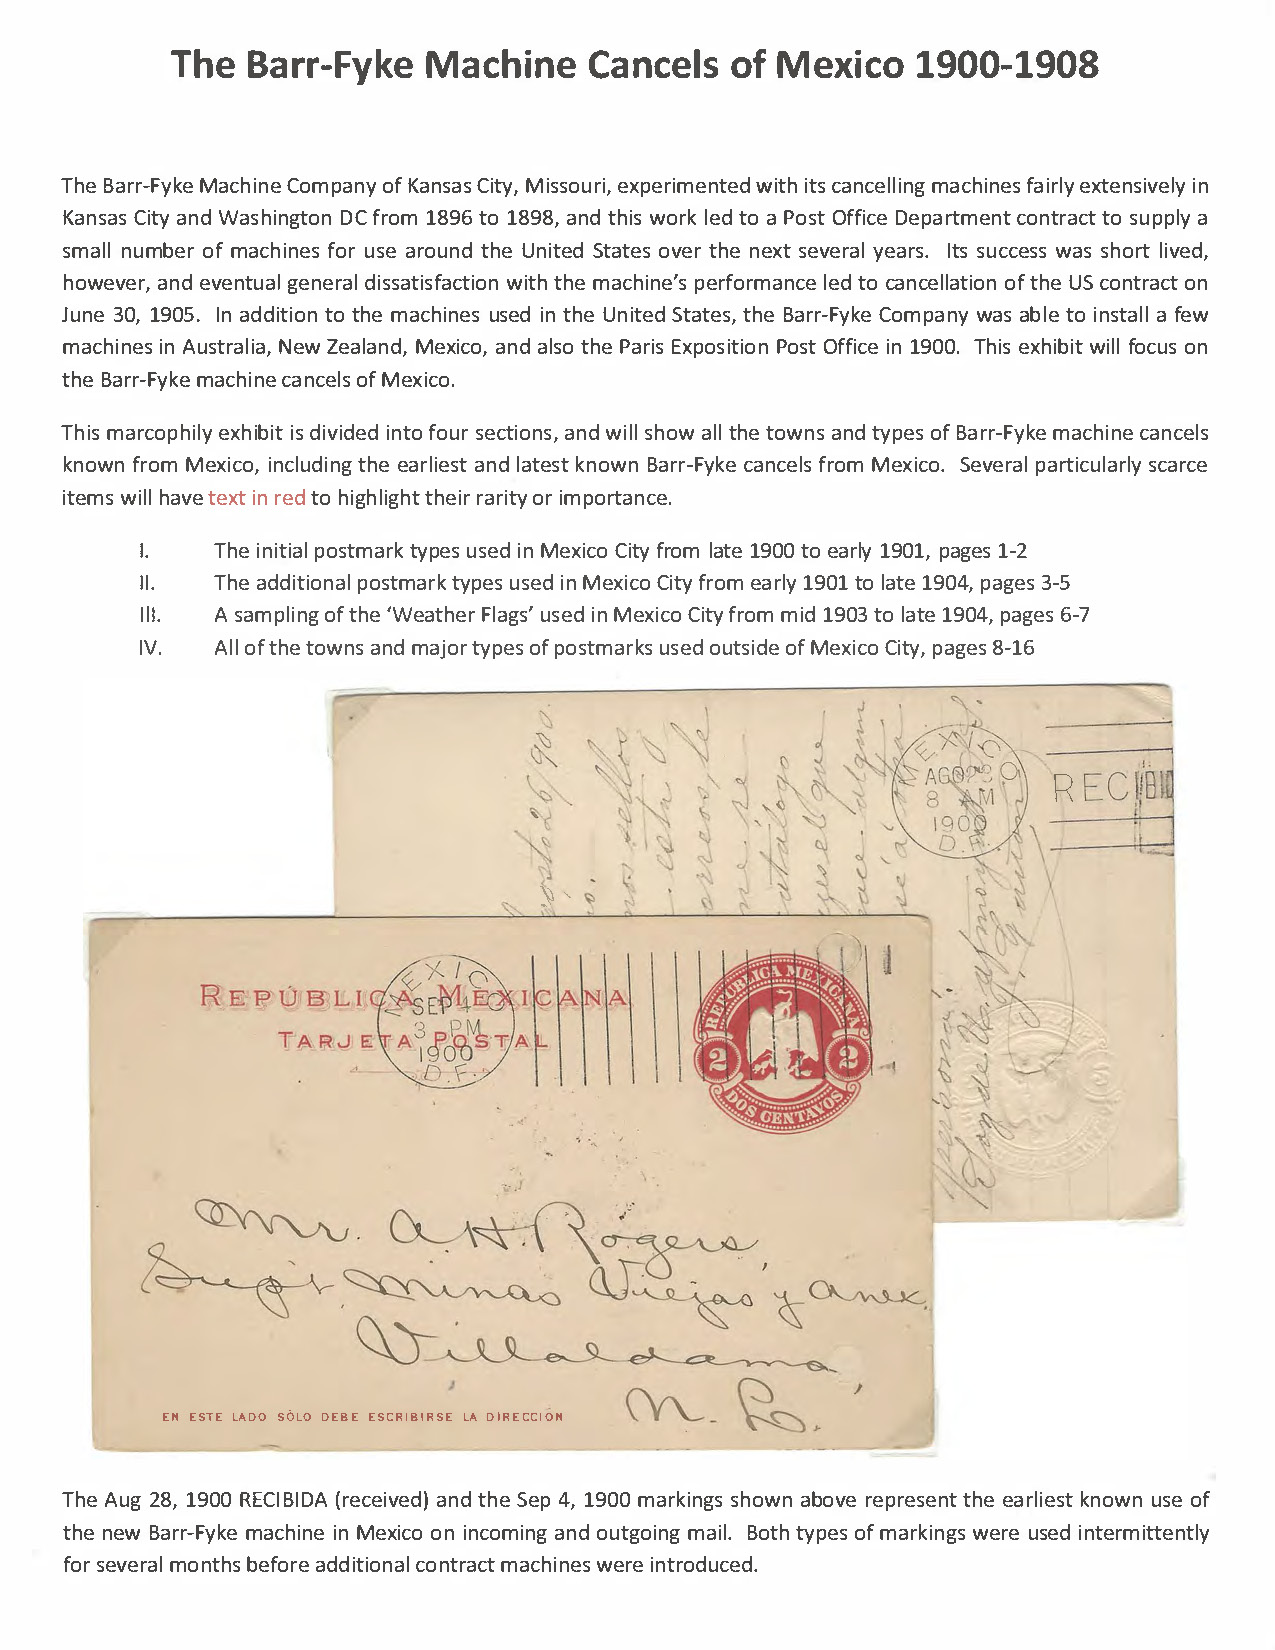 The Barr-Fyke Machine Cancels of Mexico 1900-1908
The Barr-Fyke Machine Company of Kansas City, Missouri, experimented with its cancelling machines fairly extensively in
Kansas City and Washington DC from 1896 to 1898, and this work led to a Post Office Department contract to supply a
small number of machines for use around the United States over the next several years. Its success was short lived,
however, and eventual general dissatisfaction with the machine's performance led to cancellation of the US contract on
June 30, 1905. In addition to the machines used in the United States, the Barr-Fyke Company was able to install a few
machines in Australia, New Zealand, Mexico, and also the Paris Exposition Post Office in 1900. This exhibit will focus on
the Barr-Fyke machine cancels of Mexico.
This marcophily exhibit is divided into four sections, and will show all the towns and types of Barr-Fyke machine cancels
known from Mexico, including the earliest and latest known Barr-Fyke cancels from Mexico. Several particularly scarce
items will have text in red to highlight their rarity or importance.
I. The initial postmark types used in Mexico City from late 1900 to early 1901, pages 1-2
II. The additional postmark types used in Mexico City from early 1901 to late 1904, pages 3-5
III. A sampling of the 'Weather Flags' used in Mexico City from mid 1903 to late 1904, pages 6-7
IV. All of the towns and major types of postmarks used outside of Mexico City, pages 8-16
MEXICO
AGO 28
8 AM
1900
D.F.
RECIBID
agosto 26/900.
sellos
esta
correos, le
me
catálogo
que
algun
REPÚBLICA MEXICANA
TARJETA POSTAL
MEXICO
SEP 4
3 PM
1900
D.F.
REPÚBLICA MEXICANA
2 2
DOS CENTAVOS
Mr. A. H. Rogers,
Sup't Minas Viejas y Anex.
Villaldama,
N. L.
EN ESTE LADO SÓLO DEBE ESCRIBIRSE LA DIRECCIÓN
The Aug 28, 1900 RECIBIDA (received) and the Sep 4, 1900 markings shown above represent the earliest known use of
the new Barr-Fyke machine in Mexico on incoming and outgoing mail. Both types of markings were used intermittently
for several months before additional contract machines were introduced.